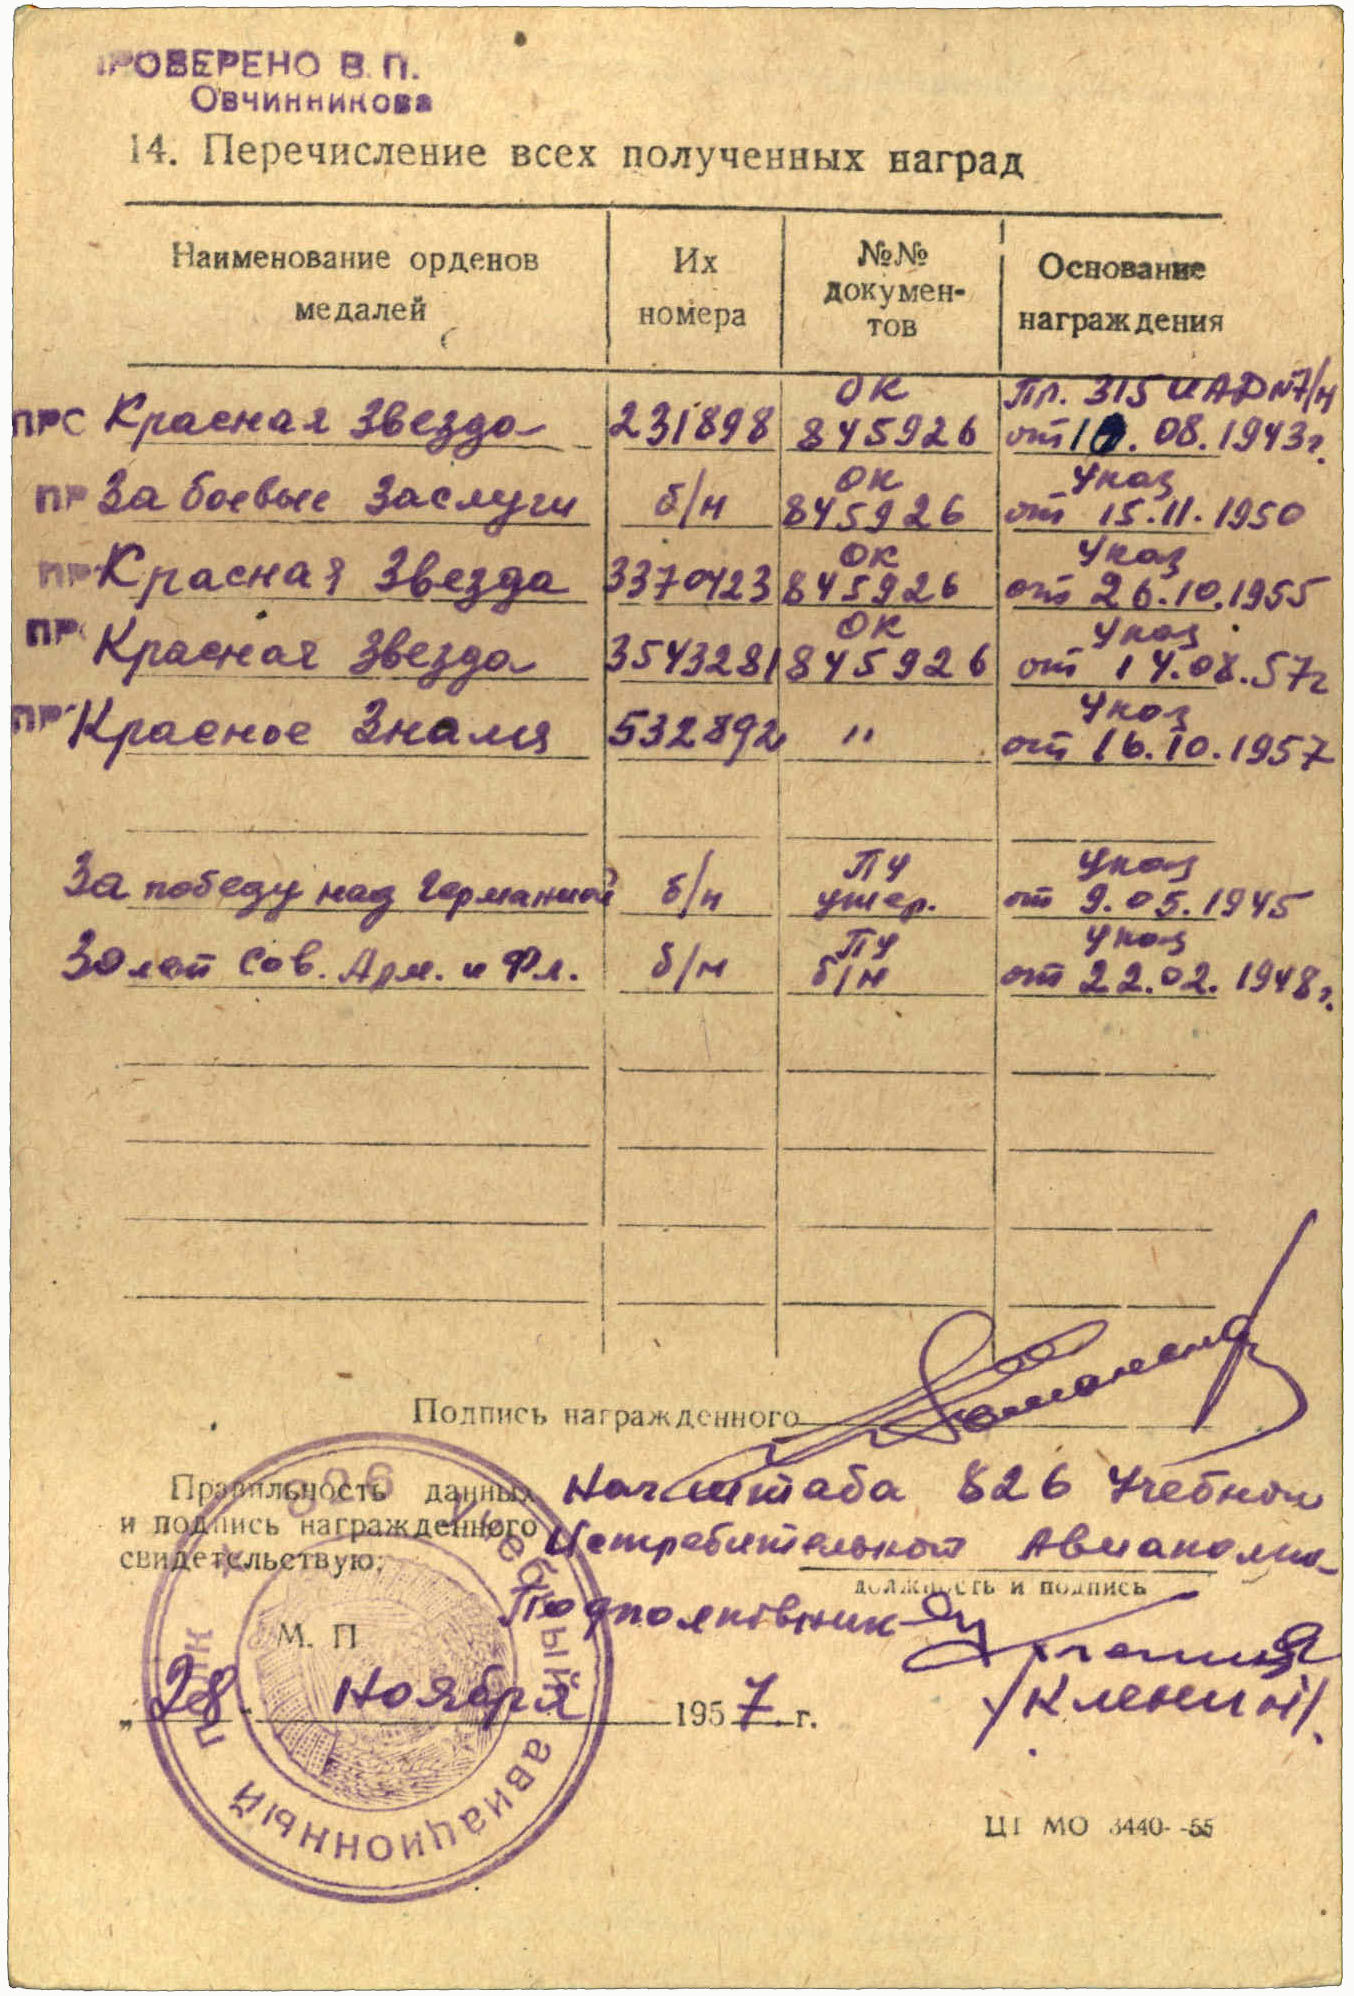 ПРОВЕРЕНО В. П.
Овчинникова
14. Перечисление всех полученных наград
Наименование орденов медалей
Их номера
№№ докумен-тов
Основание награждения
ОК Пр. 315 ИАД №7/н
ПРС Красная Звезда 231898 845926 от 10.08.1943г.
ОК Указ
ПР За боевые Заслуги б/н 845926 от 15.11.1950
ОК Указ
ПР Красная Звезда 3370423 845926 от 26.10.1955
ОК Указ
ПРС Красная Звезда 3543281 845926 от 14.08.57г
Указ
ПР Красное Знамя 532892 " от 16.10.1957
ПУ Указ
За победу над Германией б/н утер. от 9.05.1945
ПУ Указ
30 лет Сов. Арм. и Фл. б/н б/н от 22.02.1948г.
Подпись награжденного
Правильность данных
и подпись награжденного
свидетельствую:
Нач штаба 826 Учебного
Истребительного Авиаполка
должность и подпись
Подполковник
М. П
/Кленин/.
„28" Ноября 1957 г.
826 учебный авиационный полк
ЦТ МО 3440--55